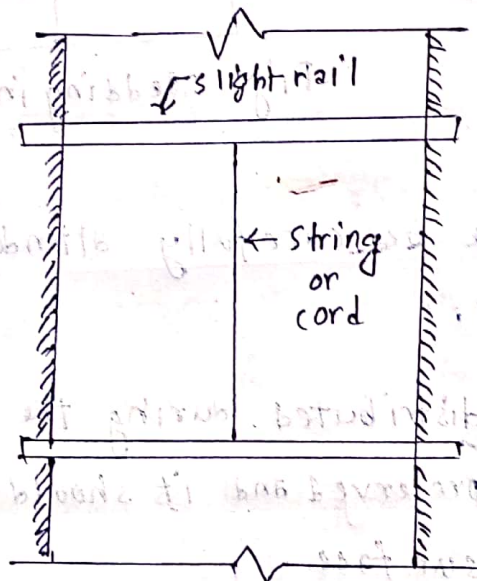 slight rail
string
or
cord